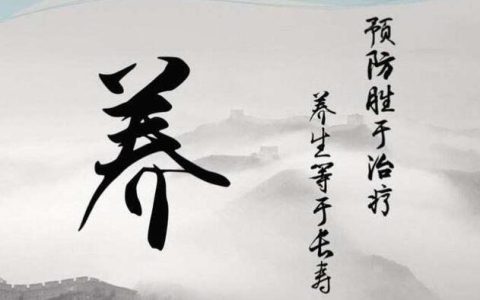 预防胜于治疗
养生等于长寿
养